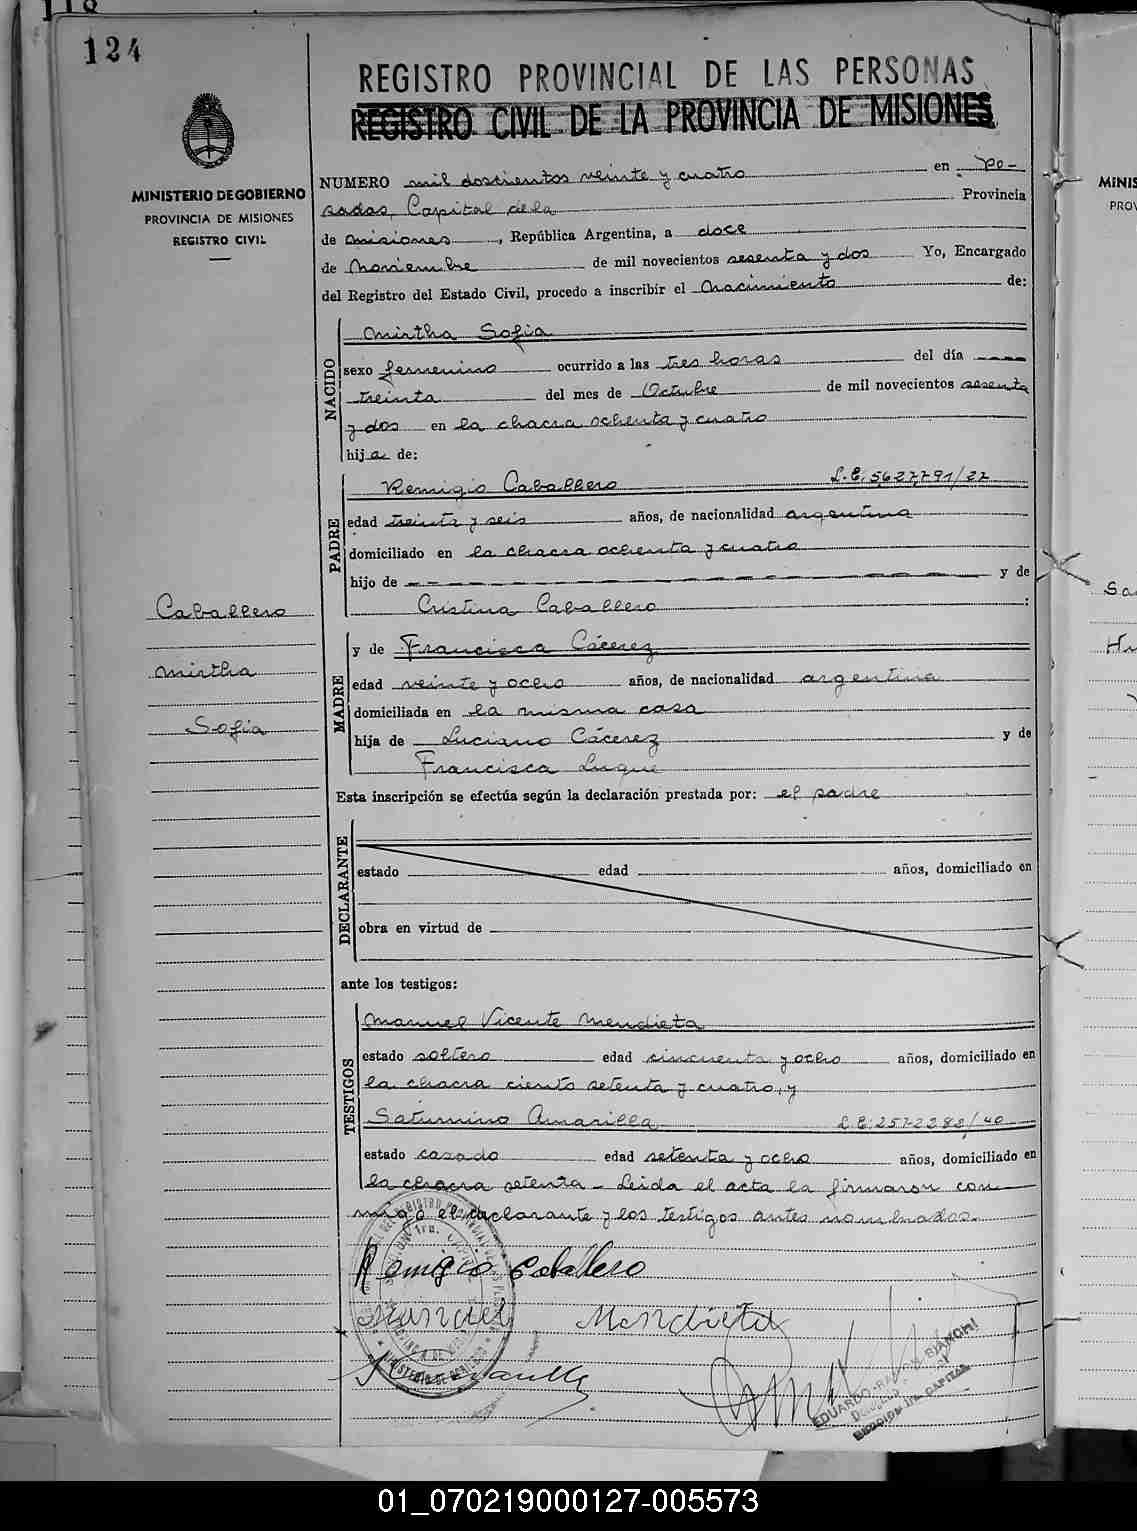 118
124
REGISTRO PROVINCIAL DE LAS PERSONAS
REGISTRO CIVIL DE LA PROVINCIA DE MISIONES
MINISTERIO DE GOBIERNO
PROVINCIA DE MISIONES
REGISTRO CIVIL
NUMERO mil doscientos veinte y cuatro en Po-
sadas, Capital de la Provincia
de Misiones, República Argentina, a doce
de Noviembre de mil novecientos sesenta y dos Yo, Encargado
del Registro del Estado Civil, procedo a inscribir el Nacimiento de:
NACIDO
Mirtha Sofia
sexo femenino ocurrido a las tres horas del día
treinta del mes de Octubre de mil novecientos sesenta
y dos en la chacra ochenta y cuatro
hija de:
PADRE
Remigio Caballero L.E. 5627.791/27
edad treinta y seis años, de nacionalidad argentina
domiciliado en la chacra ochenta y cuatro
hijo de y de
Cristina Caballero :
Caballero
Mirtha
Sofia
MADRE
y de Francisca Cácerez
edad veinte y ocho años, de nacionalidad argentina
domiciliada en la misma casa
hija de Luciano Cácerez y de
Francisca Luque
Esta inscripción se efectúa según la declaración prestada por: el padre
DECLARANTE
estado edad años, domiciliado en
obra en virtud de
ante los testigos:
TESTIGOS
Manuel Vicente Mendieta
estado soltero edad cincuenta y ocho años, domiciliado en
la chacra ciento setenta y cuatro, y
Saturnino Amarilla L.E. 257-2288/40
estado casado edad setenta y ocho años, domiciliado en
la chacra setenta - Leida el acta la firmaron con-
migo el declarante y los testigos antes nombrados.
Remigio Caballero
Manuel Mendieta
EDUARDO RAMON BIANCHI
SECCION 1a. CAPITAL
01_070219000127-005573